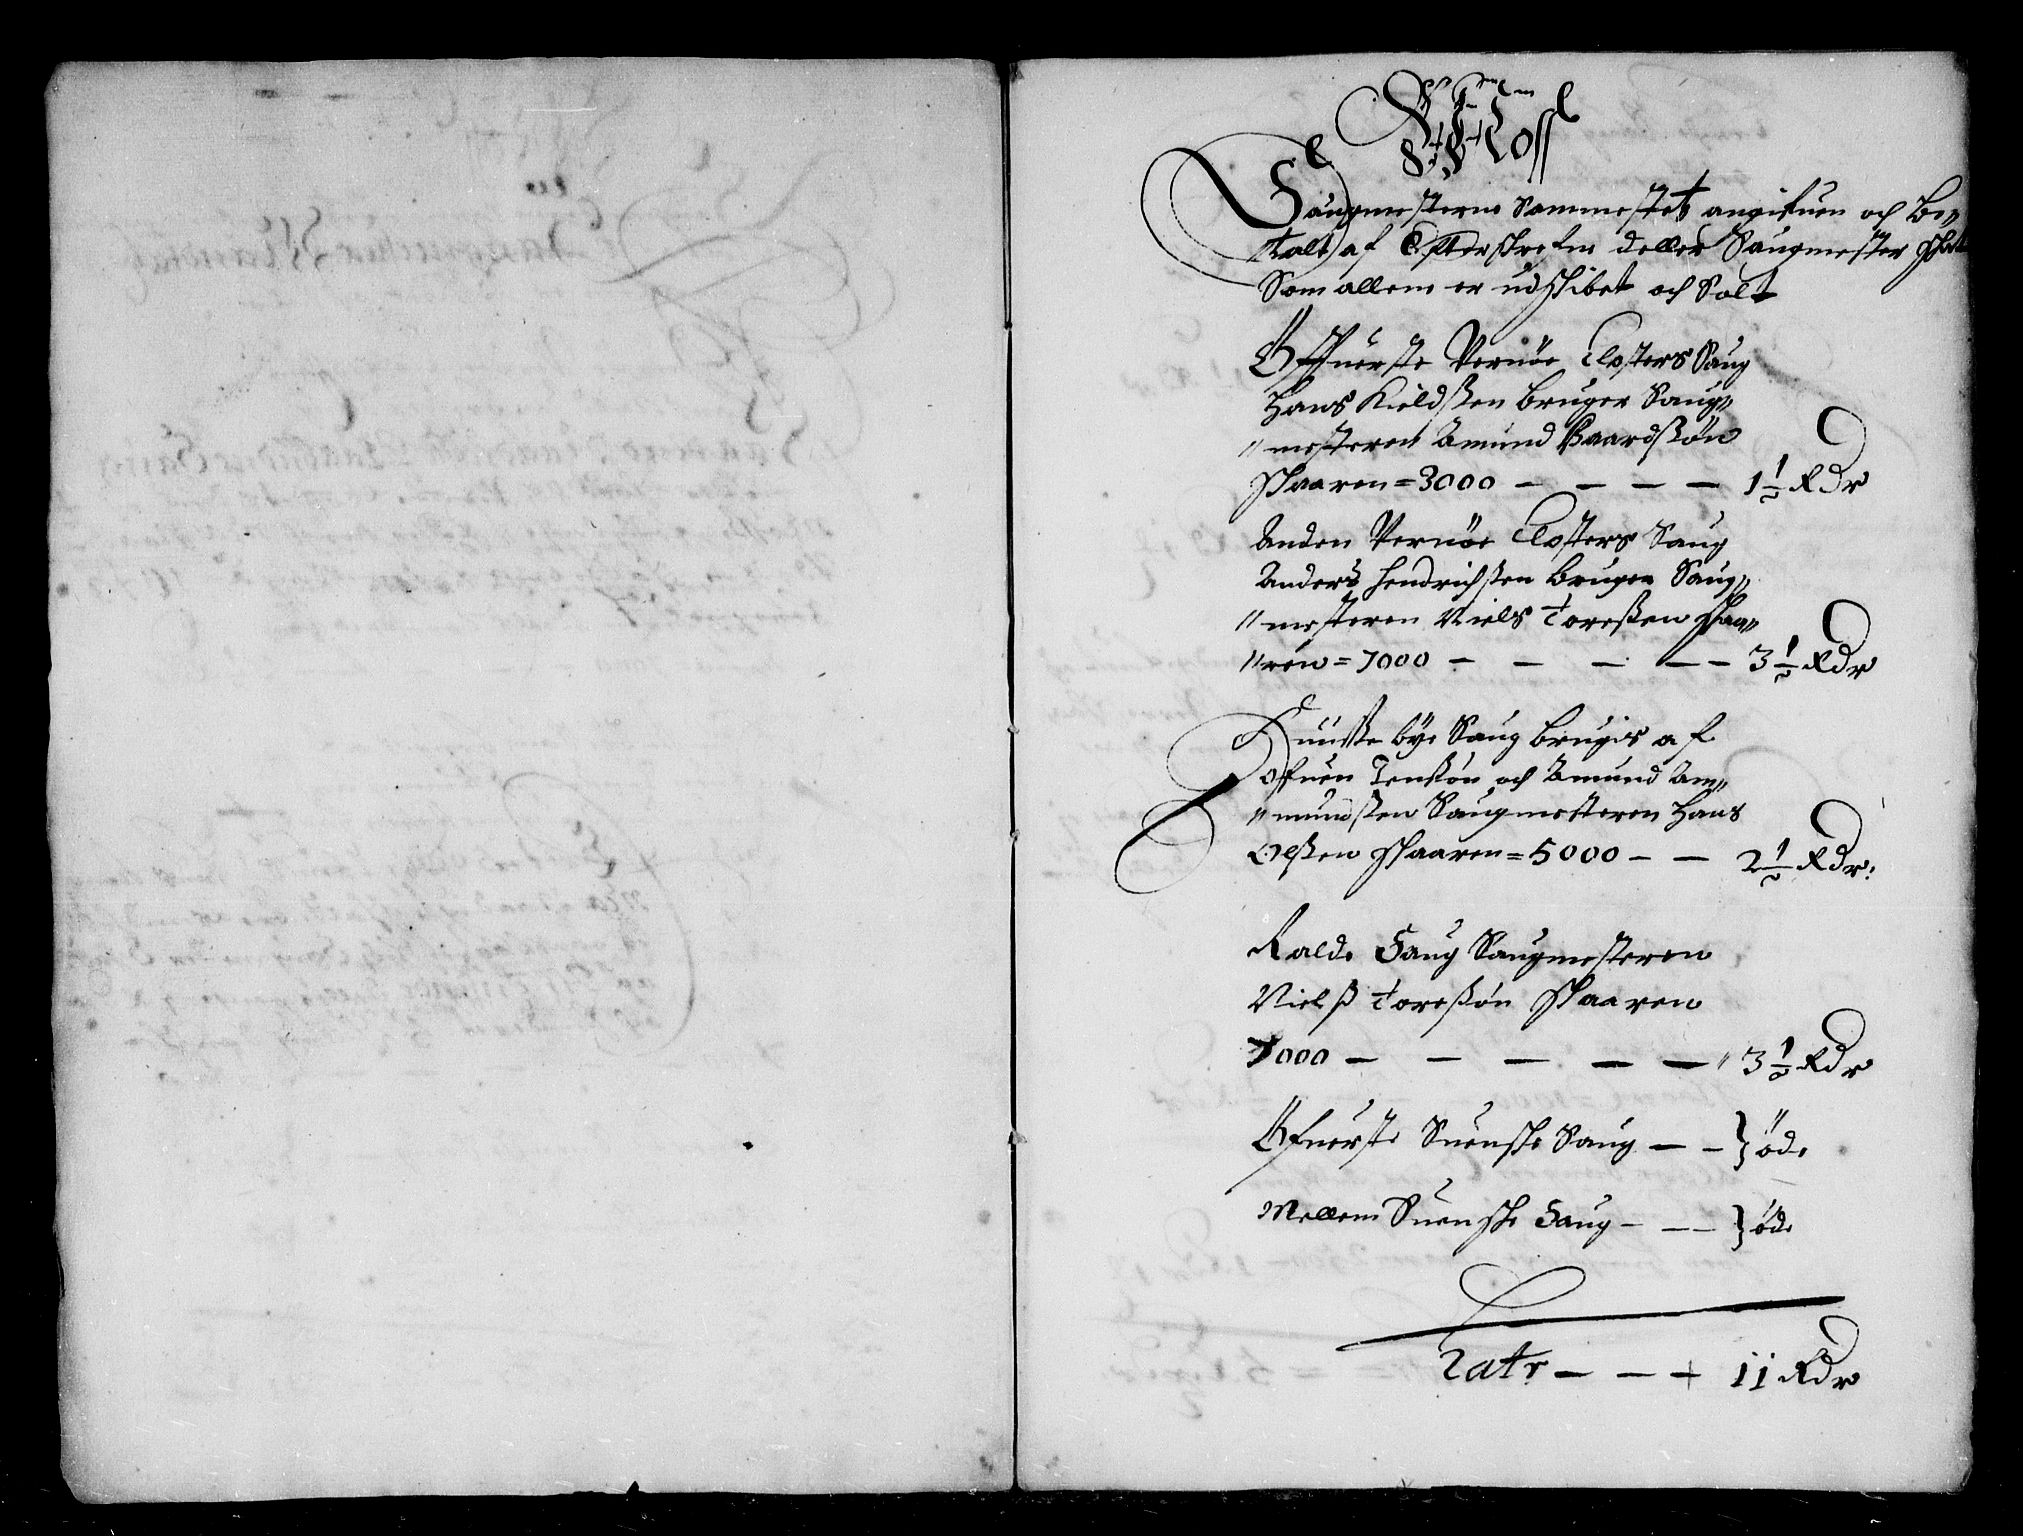 Moss
Saugmesterne Sammestets angifuen och be„
talt af Efterskrefne deller Saugmester Skatt
Som allene er udskibet och Solt
Øffuerste Vernøe Closters Saug
Hans Kieldßen bruger Saug„
„mesteren Amund Baardßøn
Skaaren = 3000 — — — — 1½ Rdr
Anden Vernøe Closters Saug
Anders Hendrichßen bruger Saug„
„mesteren Niels Toreßen Skaa„
„ren = 7000 — — — — — 3½ Rdr
bye Saug brugis af
Jenßøn och Amund Am„
„mundßen Saugmesteren Hans
Olßen Skaaren = 5000 — — 2½ Rdr:
Ralde Saug Saugmesteren
Nielß Toreßøn Skaaren
7000 — — — — — „ 3½ Rdr
Øfuerste Suenske Saug — — } øde
Mellem Suenske Saug — — — } øde
Latr — — + 11 Rdr